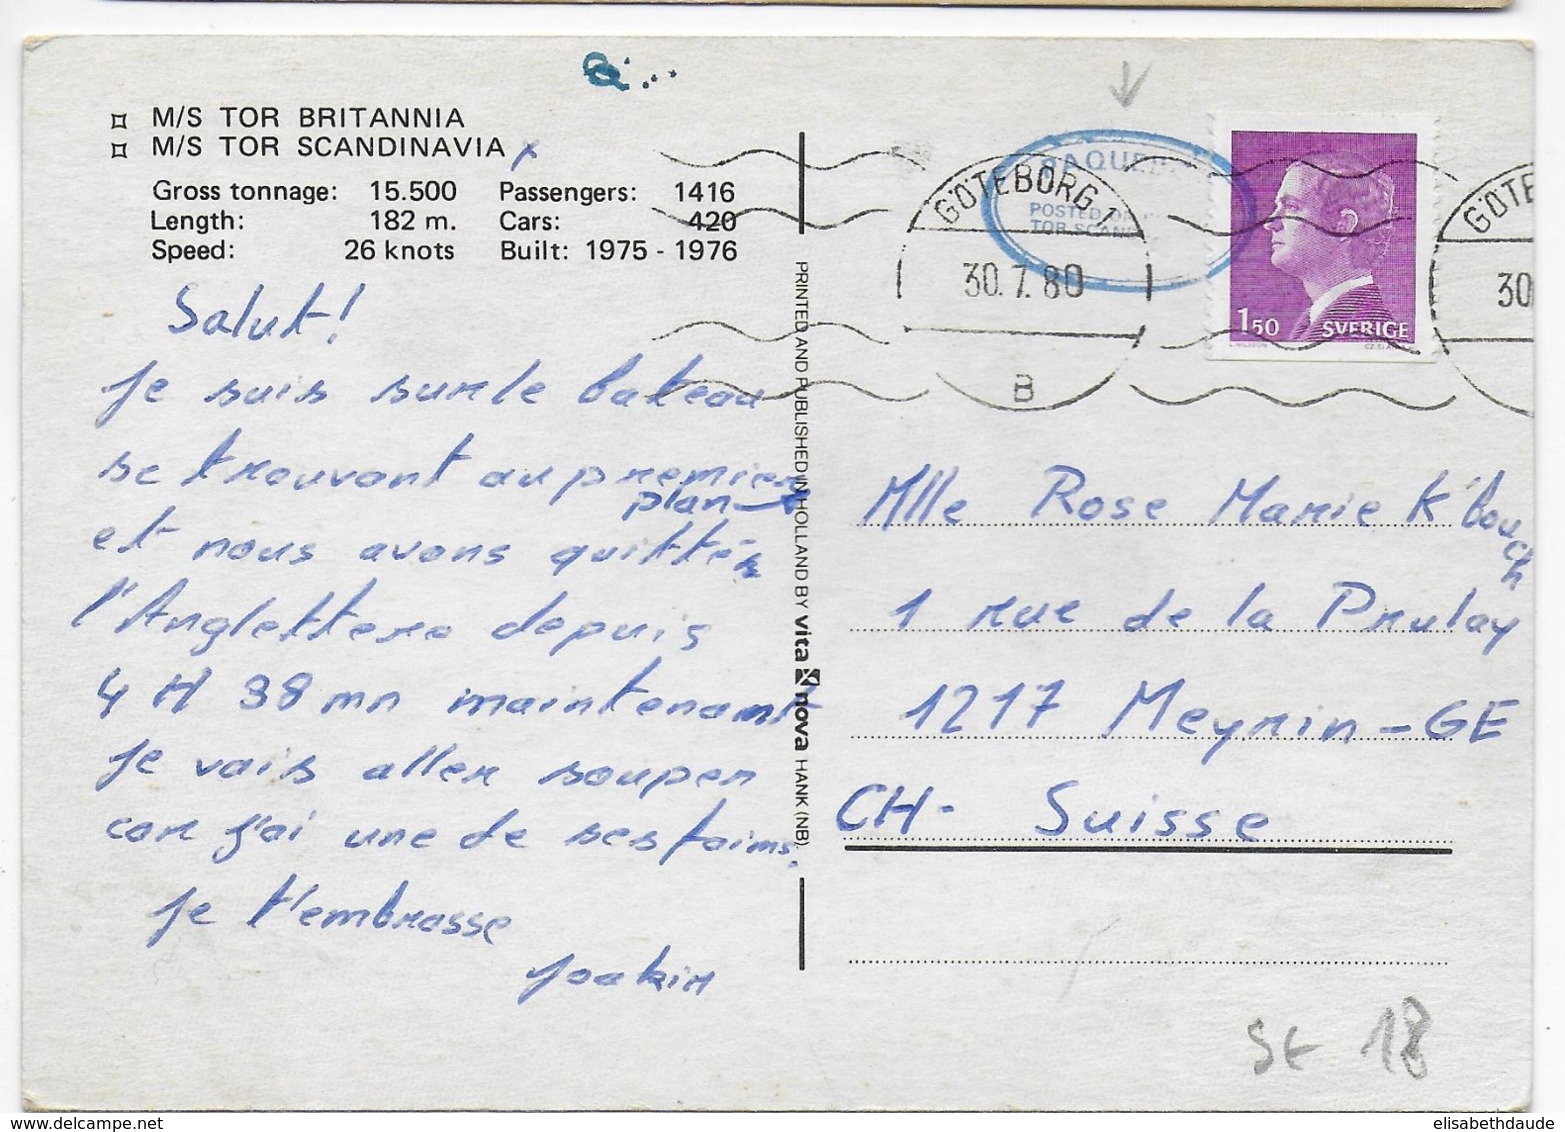 M/S TOR BRITANNIA
M/S TOR SCANDINAVIA x
Gross tonnage: 15.500 Passengers: 1416
Length: 182 m. Cars: 420
Speed: 26 knots Built: 1975 - 1976
Salut!
Je suis sur le bateau
se trouvant au premier
plan
et nous avons quittés
l'Anglettere depuis
4 H 38 mn maintenant
je vais aller souper
car j'ai une de ses faims.
Je t'embrasse
Joakim
PRINTED AND PUBLISHED IN HOLLAND BY vita nova HANK (NB).
PAQUEB
POSTED ON
TOR SCAND
GÖTEBORG 1
30.7.80
B
1 50 SVERIGE
GÖTE
30
Mlle Rose Marie K'bouch
1 rue de la Prulay
1217 Meyrin-GE
CH- Suisse
SE 18
delcampe.net
elisabethdaude